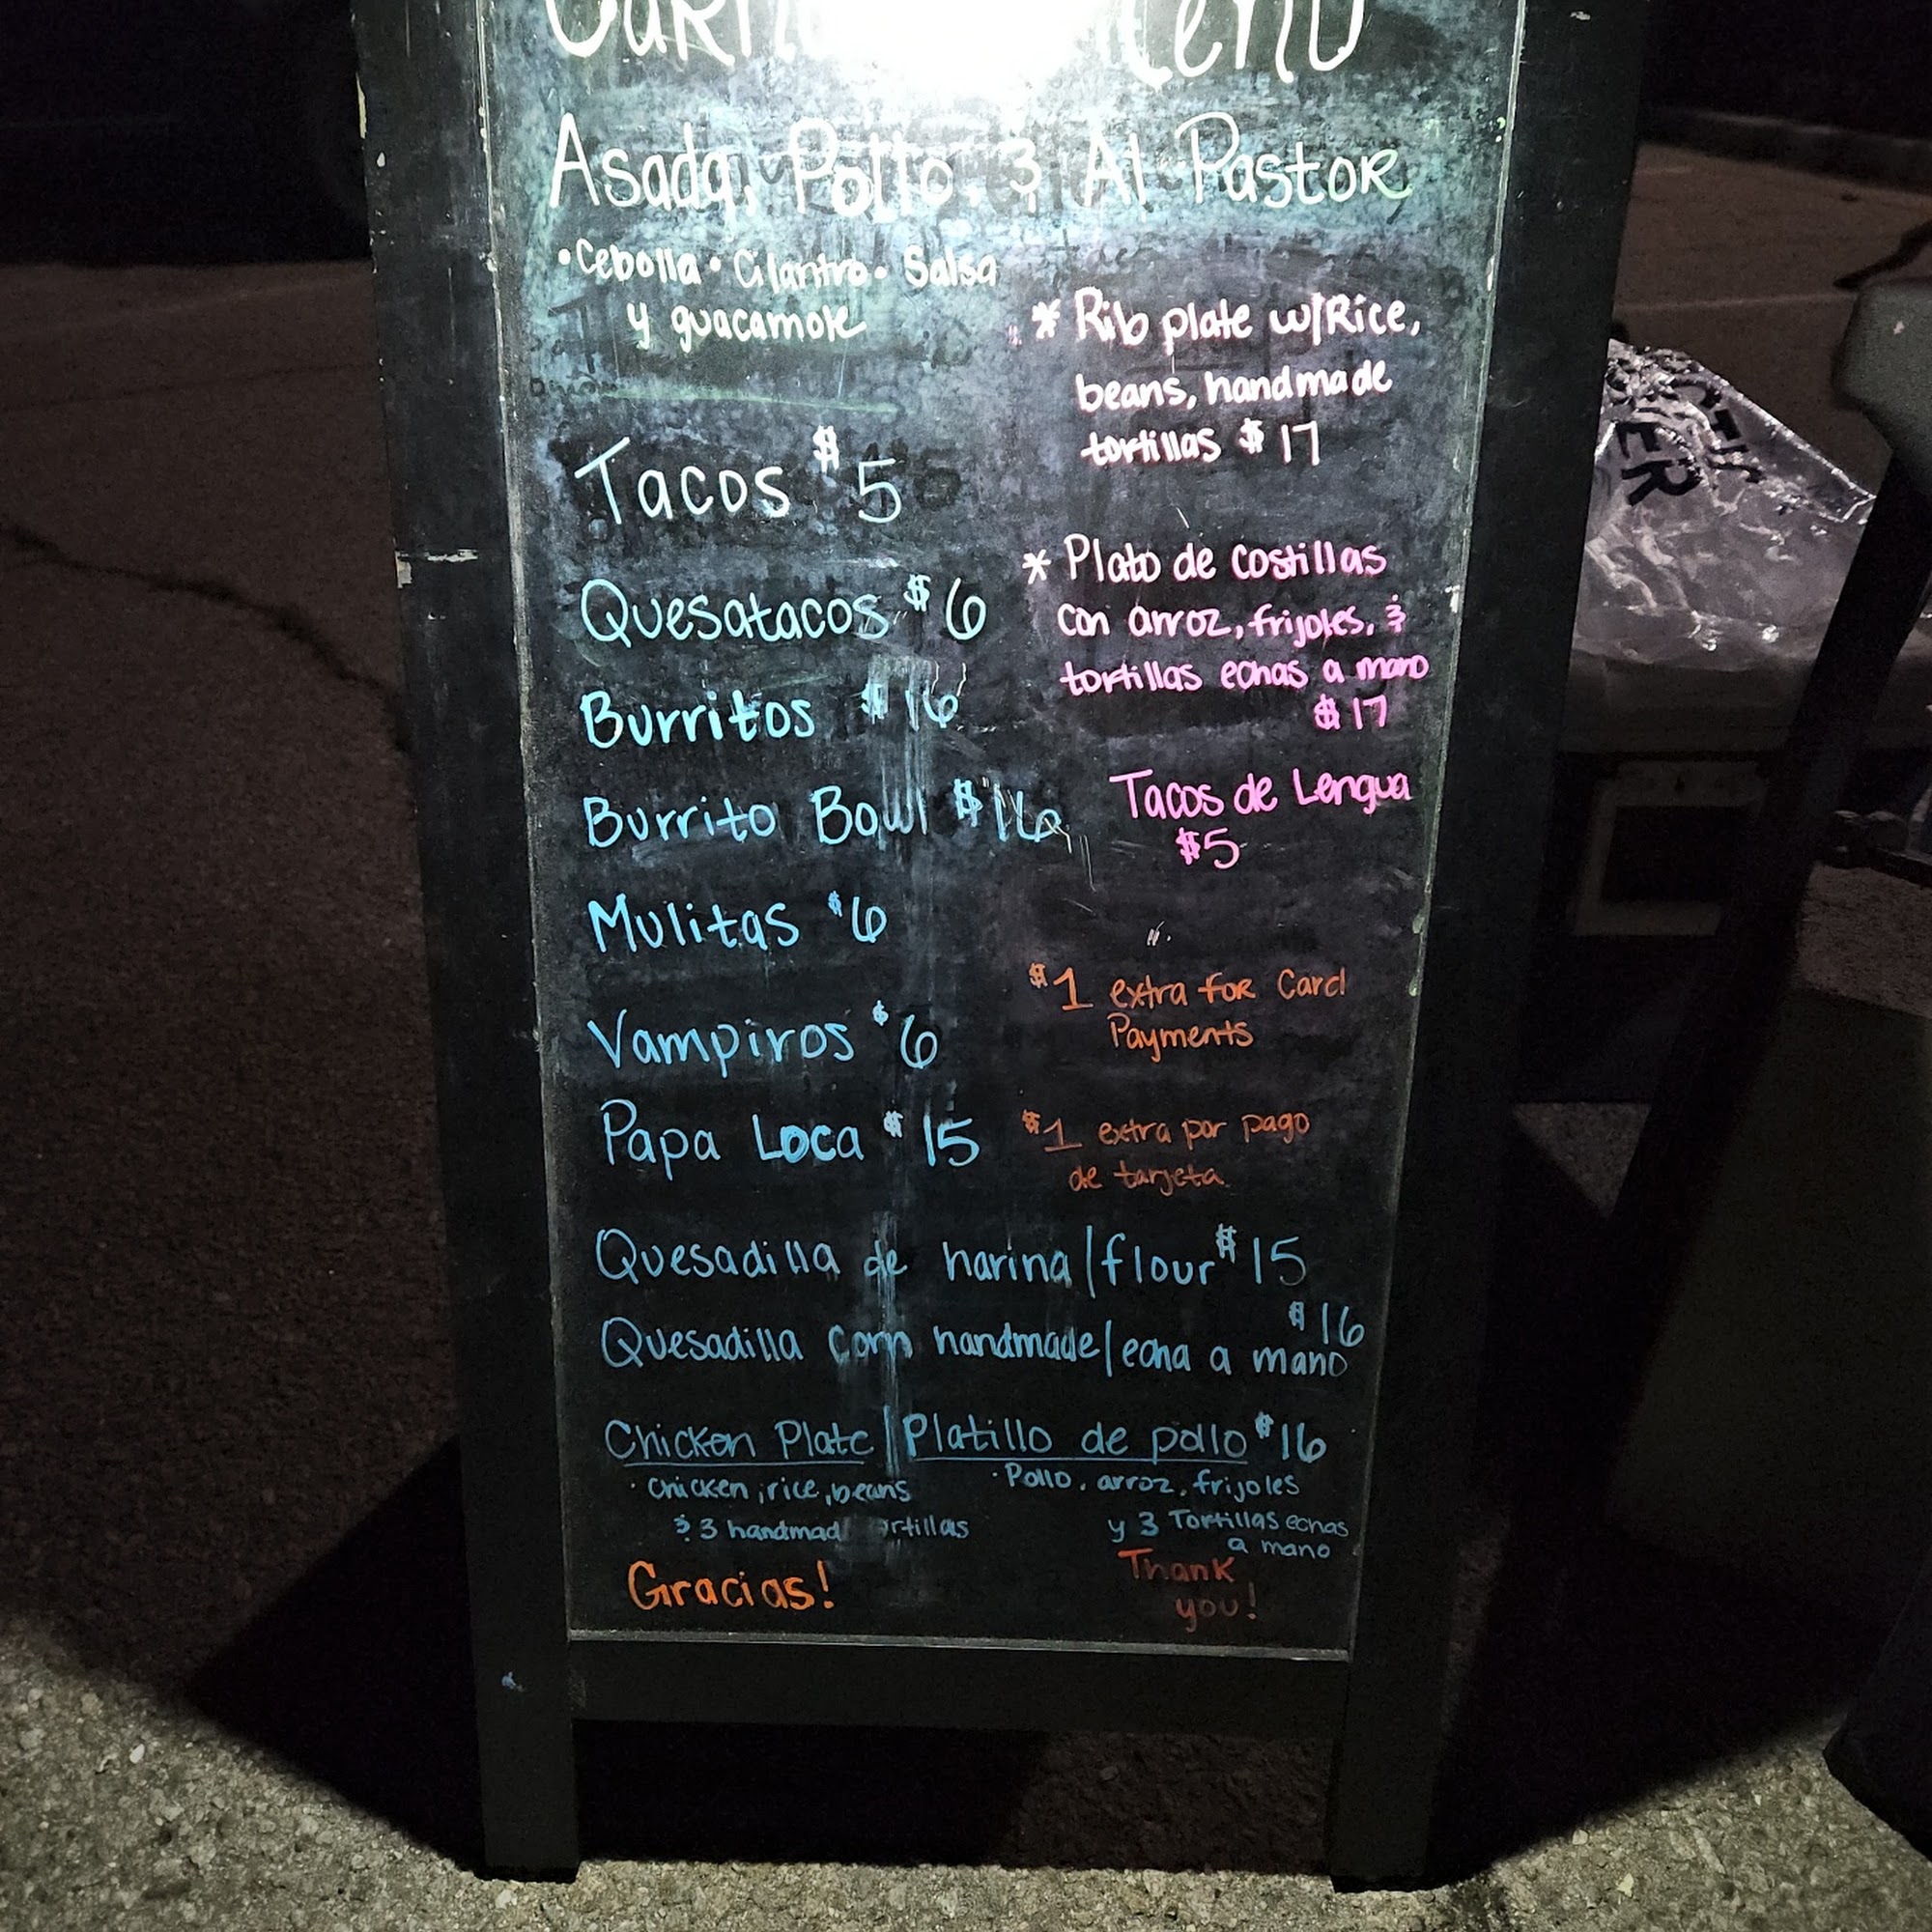 Asada, Pollo, & Al Pastor
• Cebolla • Cilantro • Salsa
y guacamole
Tacos $5
Quesatacos $6
Burritos $16
Burrito Bowl $16
Mulitas $6
Vampiros $6
Papa Loca $15
* Rib plate w/Rice,
beans, handmade
tortillas $17
* Plato de costillas
con arroz, frijoles, &
tortillas echas a mano
$17
Tacos de Lengua
$5
$1 extra for Card
Payments
$1 extra por pago
de tarjeta
Quesadilla de harina/flour $15
Quesadilla corn handmade/echa a mano $16
Chicken Plate / Platillo de pollo $16
• Chicken, rice, beans
& 3 handmad rtillas
• Pollo, arroz, frijoles
y 3 Tortillas echas
a mano
Gracias!
Thank
you!